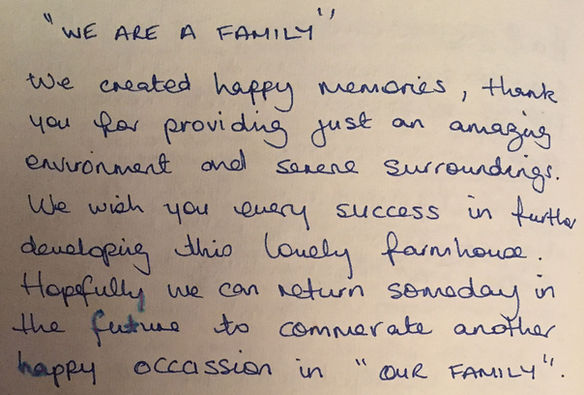 "WE ARE A FAMILY"
We created happy memories, thank
you for providing just an amazing
environment and serene surroundings.
We wish you every success in further
developing this lovely farmhouse.
Hopefully we can return someday in
the future to commerate another
happy occassion in "OUR FAMILY".